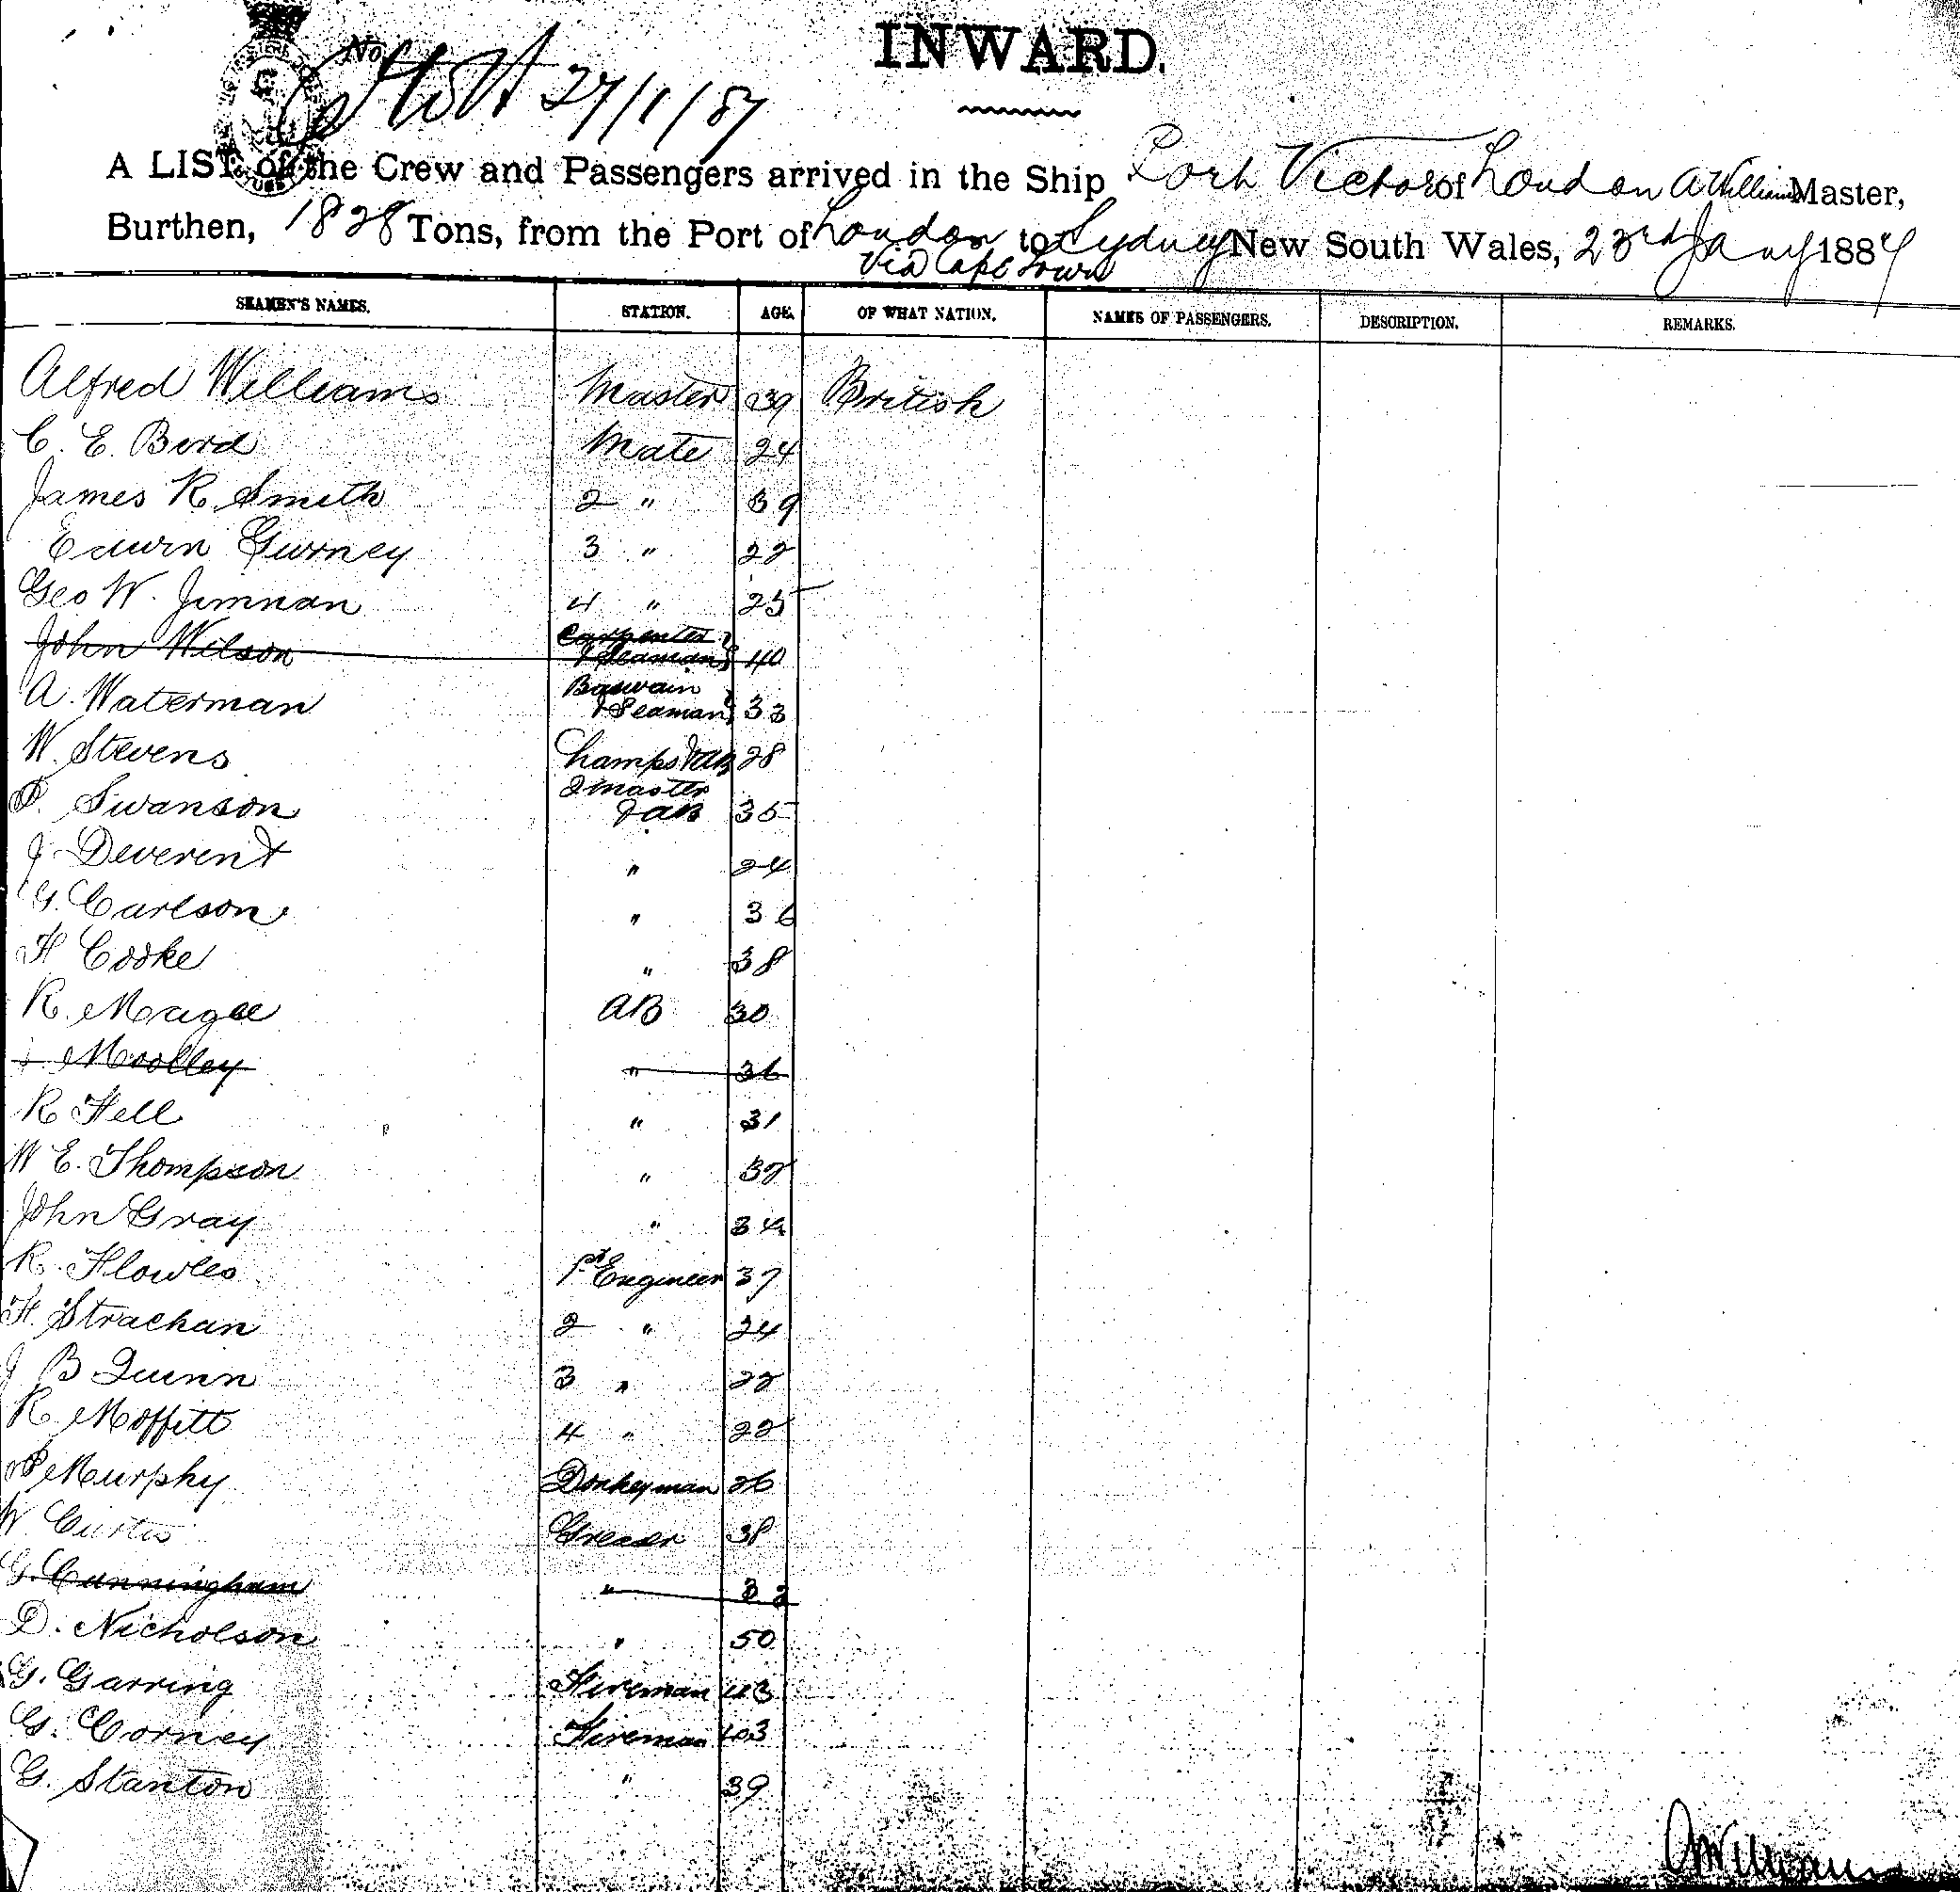 INWARD.
No 27/1/87
A LIST of the Crew and Passengers arrived in the Ship Port Victor of London A Williams Master,
Burthen, 1828 Tons, from the Port of London to Sydney New South Wales, 23rd Jany 1887
Via Cape Town
SEAMEN'S NAMES. STATION. AGE. OF WHAT NATION. NAMES OF PASSENGERS. DESCRIPTION. REMARKS.
Alfred Williams Master 39 British
C. E. Bird Mate 24
James R Smith 2 " 39
Edwin Gurney 3 " 22
Geo W. Jimnan 4 " 25
John Wilson Carpenter & Seaman 40
A. Waterman Boswain & Seaman 33
W. Stevens Lamps & AB 28
P. Swanson 2 Master & AB 35
J. Deverent " 24
G. Carlson " 36
H Cooke " 38
R. Magee AB 30
Woolley " 36
R Fell " 31
W E. Thompson " 32
John Gray " 34
R. Flowles 1st Engineer 37
H. Strachan 2 " 24
J B Quinn 3 " 22
R. Moffitt 4 " 22
P Murphy Donkeyman 26
W Curtis Greaser 38
G. Cunningham " 32
D. Nicholson " 50
G. Garring Fireman 43
G. Corney Fireman 43
G. Stanton " 39
A Williams